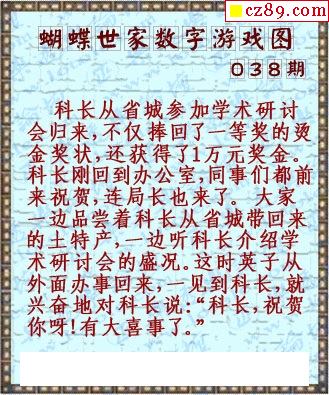 cz89.com
蝴蝶世家数字游戏图
038期
科长从省城参加学术研讨
会归来,不仅捧回了一等奖的烫
金奖状,还获得了1万元奖金。
科长刚回到办公室,同事们都前
来祝贺,连局长也来了。 大家
一边品尝着科长从省城带回来
的土特产,一边听科长介绍学
术研讨会的盛况。这时英子从
外面办事回来,一见到科长,就
兴奋地对科长说:“科长,祝贺
你呀!有大喜事了。”